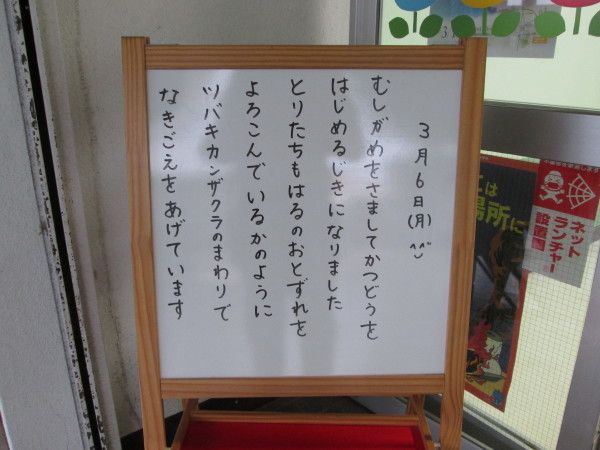 3月6日(月)
むしがめをさましてかつどうを
はじめるじきになりました
とりたちもはるのおとずれを
よろこんでいるかのように
ツバキカンザクラのまわりで
なきごえをあげています
ネット
ランチャー
設置園
には
場所に